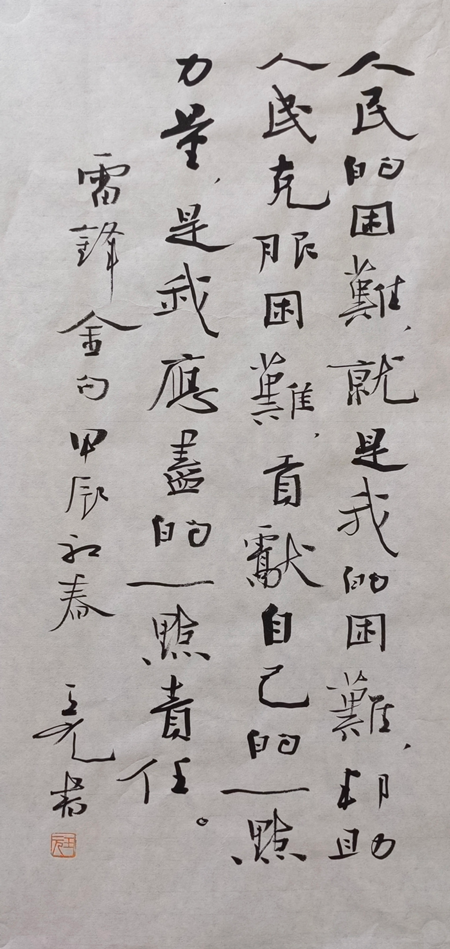 人民的困難，就是我的困難，帮助
人民克服困難，貢獻自己的一點
力量，是我應盡的一點責任。
雷鋒金句 甲辰初春 王元書
王元